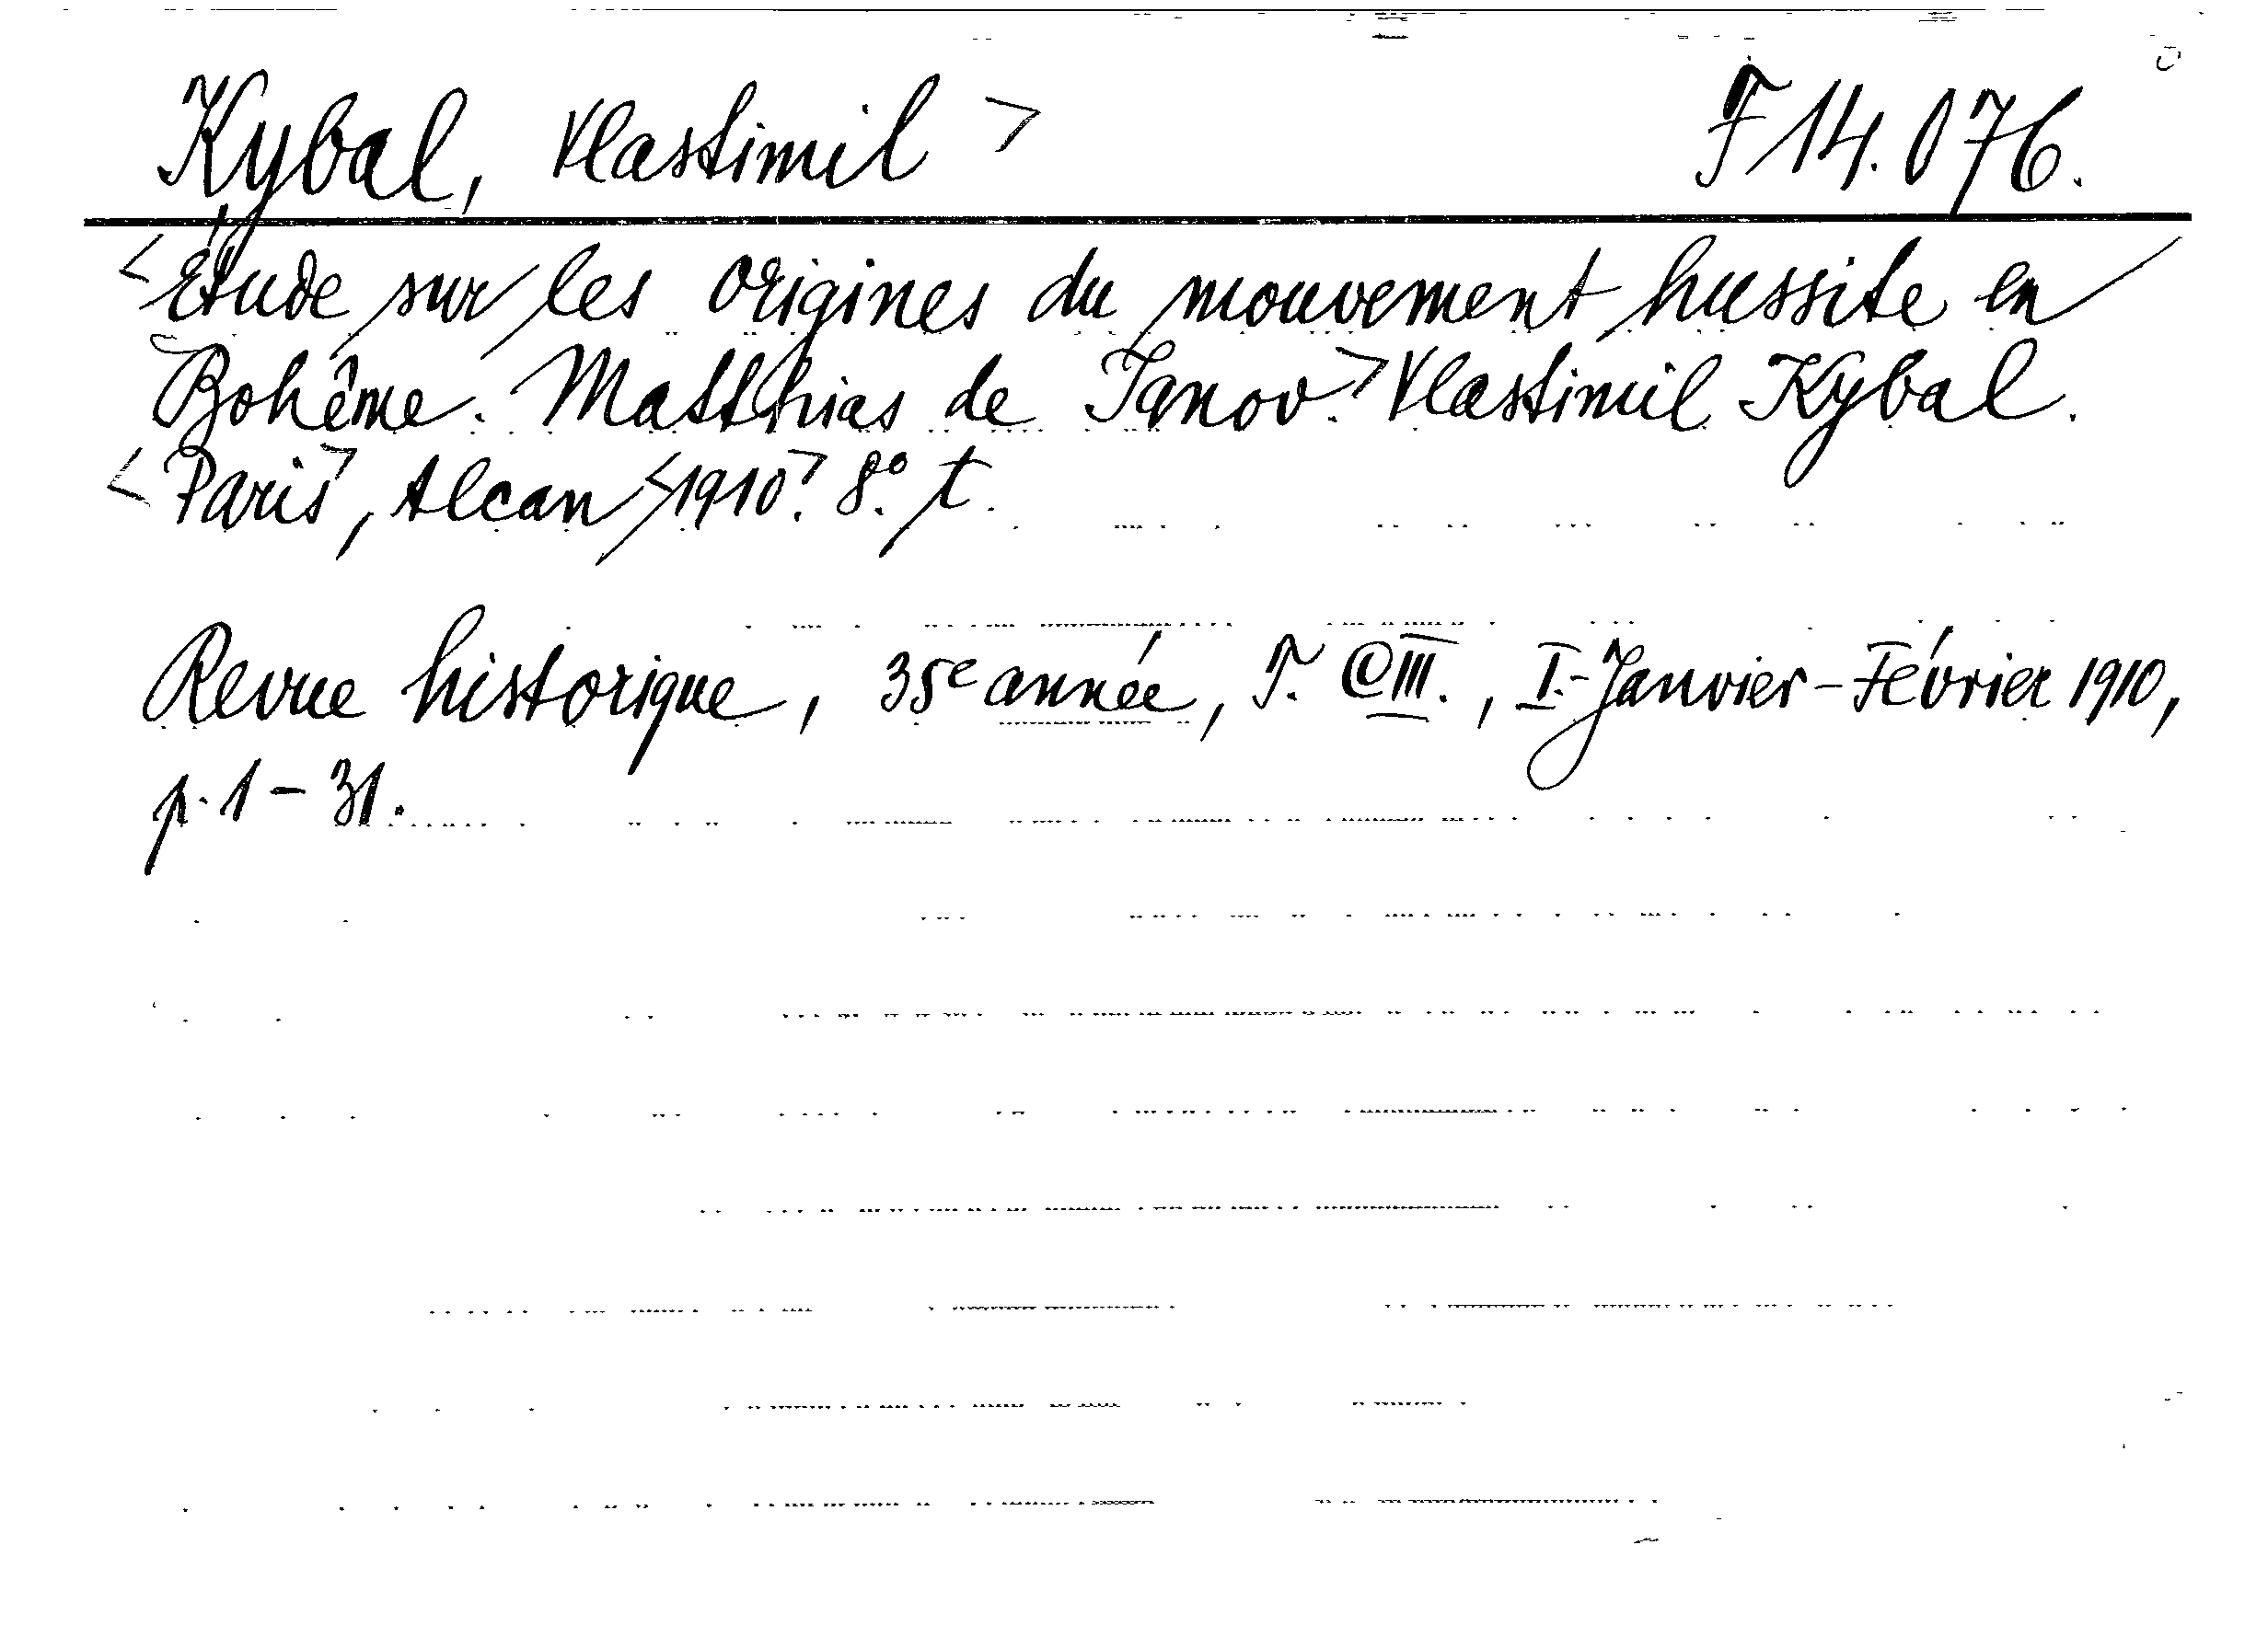 Kybal, Vlastimil > F 14.076.
<Étude sur les origines du mouvement hussite en
Bohême. Matthias de Janov.> Vlastimil Kybal.
<Paris>, Alcan <1910>. 8°. t.
Revue historique, 35e année, T. CIII., I.-Janvier-Février 1910,
p. 1 - 31.